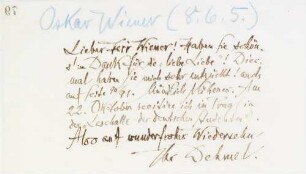 Oskar Wiener (8.6.5.)
Lieber Herr Wiener! Haben Sie schön-
sten Dank für die "liebe Liebe"! Dies-
mal haben Sie mich sehr entzückt! auch
auf Seite 91. Mündlich Näheres. Am
22. Oktober seh ich Sie in Prag, in
der Lesehalle der deutschen Studenten.
Also auf wunderfrohes Wiedersehn
Ihr Dehmel.